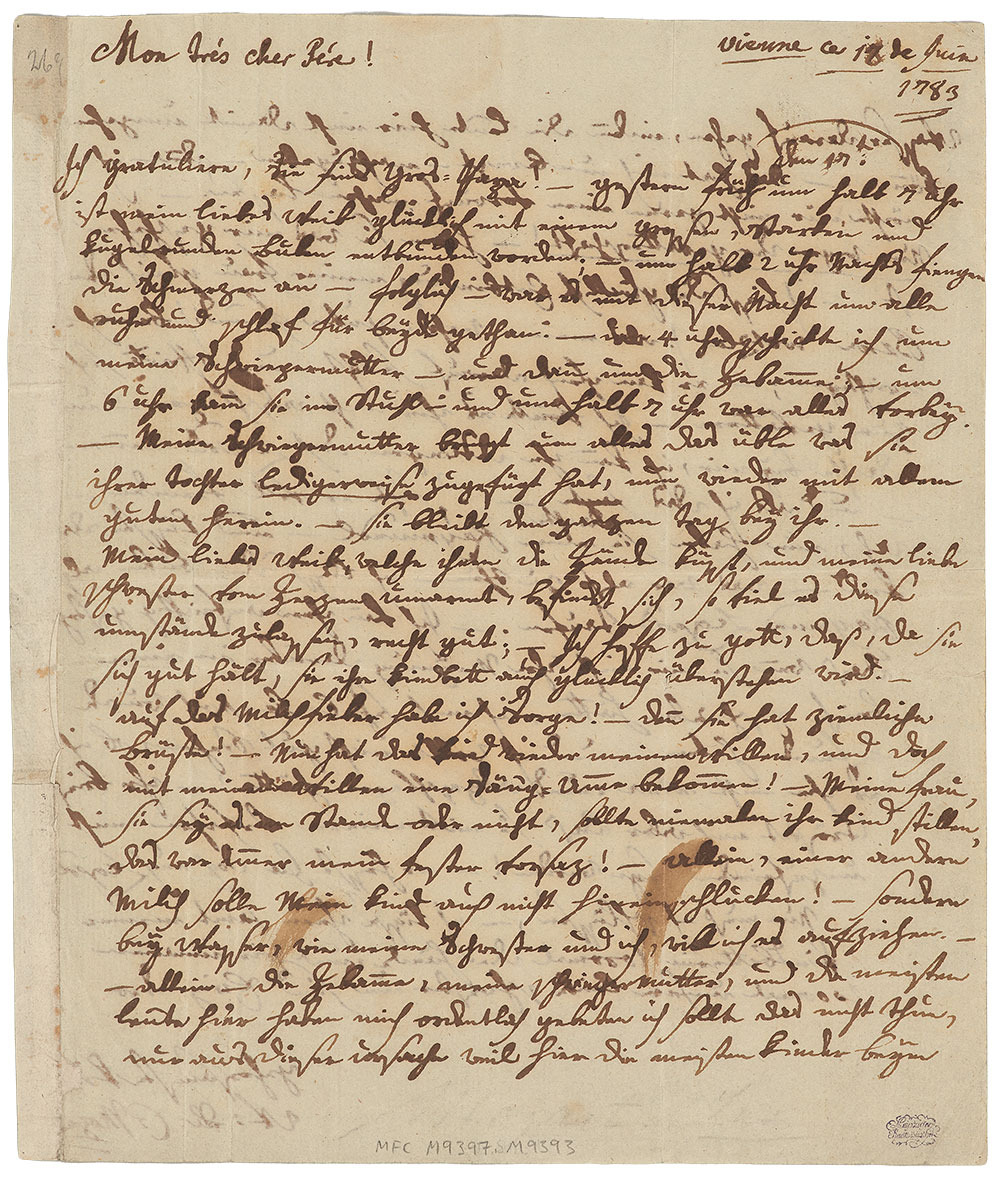 269
Mon trés cher Pére!
vienne ce 18 de Juin
1783
den 17:t
Ich gratuliere, sie sind Gros=Papa! — gestern früh um halb 7 uhr
ist mein liebes Weib glücklich mit einem grossen, starken und
kugelrunden Buben entbunden worden; — um halb 2 uhr Nachts fiengen
die Schmerzen an — folglich — war es mit dieser Nacht um alle
ruhe und schlaf für beyde gethan. — um 4 uhr schickte ich um
meine Schwiegermutter — und dann um die Hebamme; — um
6 uhr kamm sie im Stuhl — und um halb 7 uhr war alles vorbey.
— Meine Schwiegermutter bringt nun alles das üble was sie
ihrer tochter ledigerweise zugefügt hat, nun wieder mit allem
guten herein. — sie bleibt den ganzen Tag bey ihr. —
Mein liebes Weib, welche ihnen die Hände küsst, und meine liebe
schwester vom Herzen umarmt, befindet sich, so viel es diese
umstände zulassen, recht gut; — Ich hoffe zu gott, daß, da sie
sich gut hält, sie ihr kindbett auch glücklich überstehen wird. —
auf das Milchfieber habe ich Sorge! — denn sie hat ziemliche
brüste! — Nun hat das kind wieder meinen Willen, und doch
mit meinem Willen eine Säug=Amme bekommen! — Meine frau,
sie seye es im Stande oder nicht, sollte niemalen ihr kind stillen,
das war immer mein fester vorsaz! — allein, einer andern
Milch solle Mein kind auch nicht hineinschlucken! — sondern
bey Wasser, wie meine Schwester und ich, will ich es aufziehen. —
— allein — die Hebamme, meine schwiegermutter, und die meisten
leute hier haben mich ordentlich gebeten ich sollte das nicht thun,
nur aus dieser ursache weil hier die meisten kinder beym
MFC M9397.5M9393